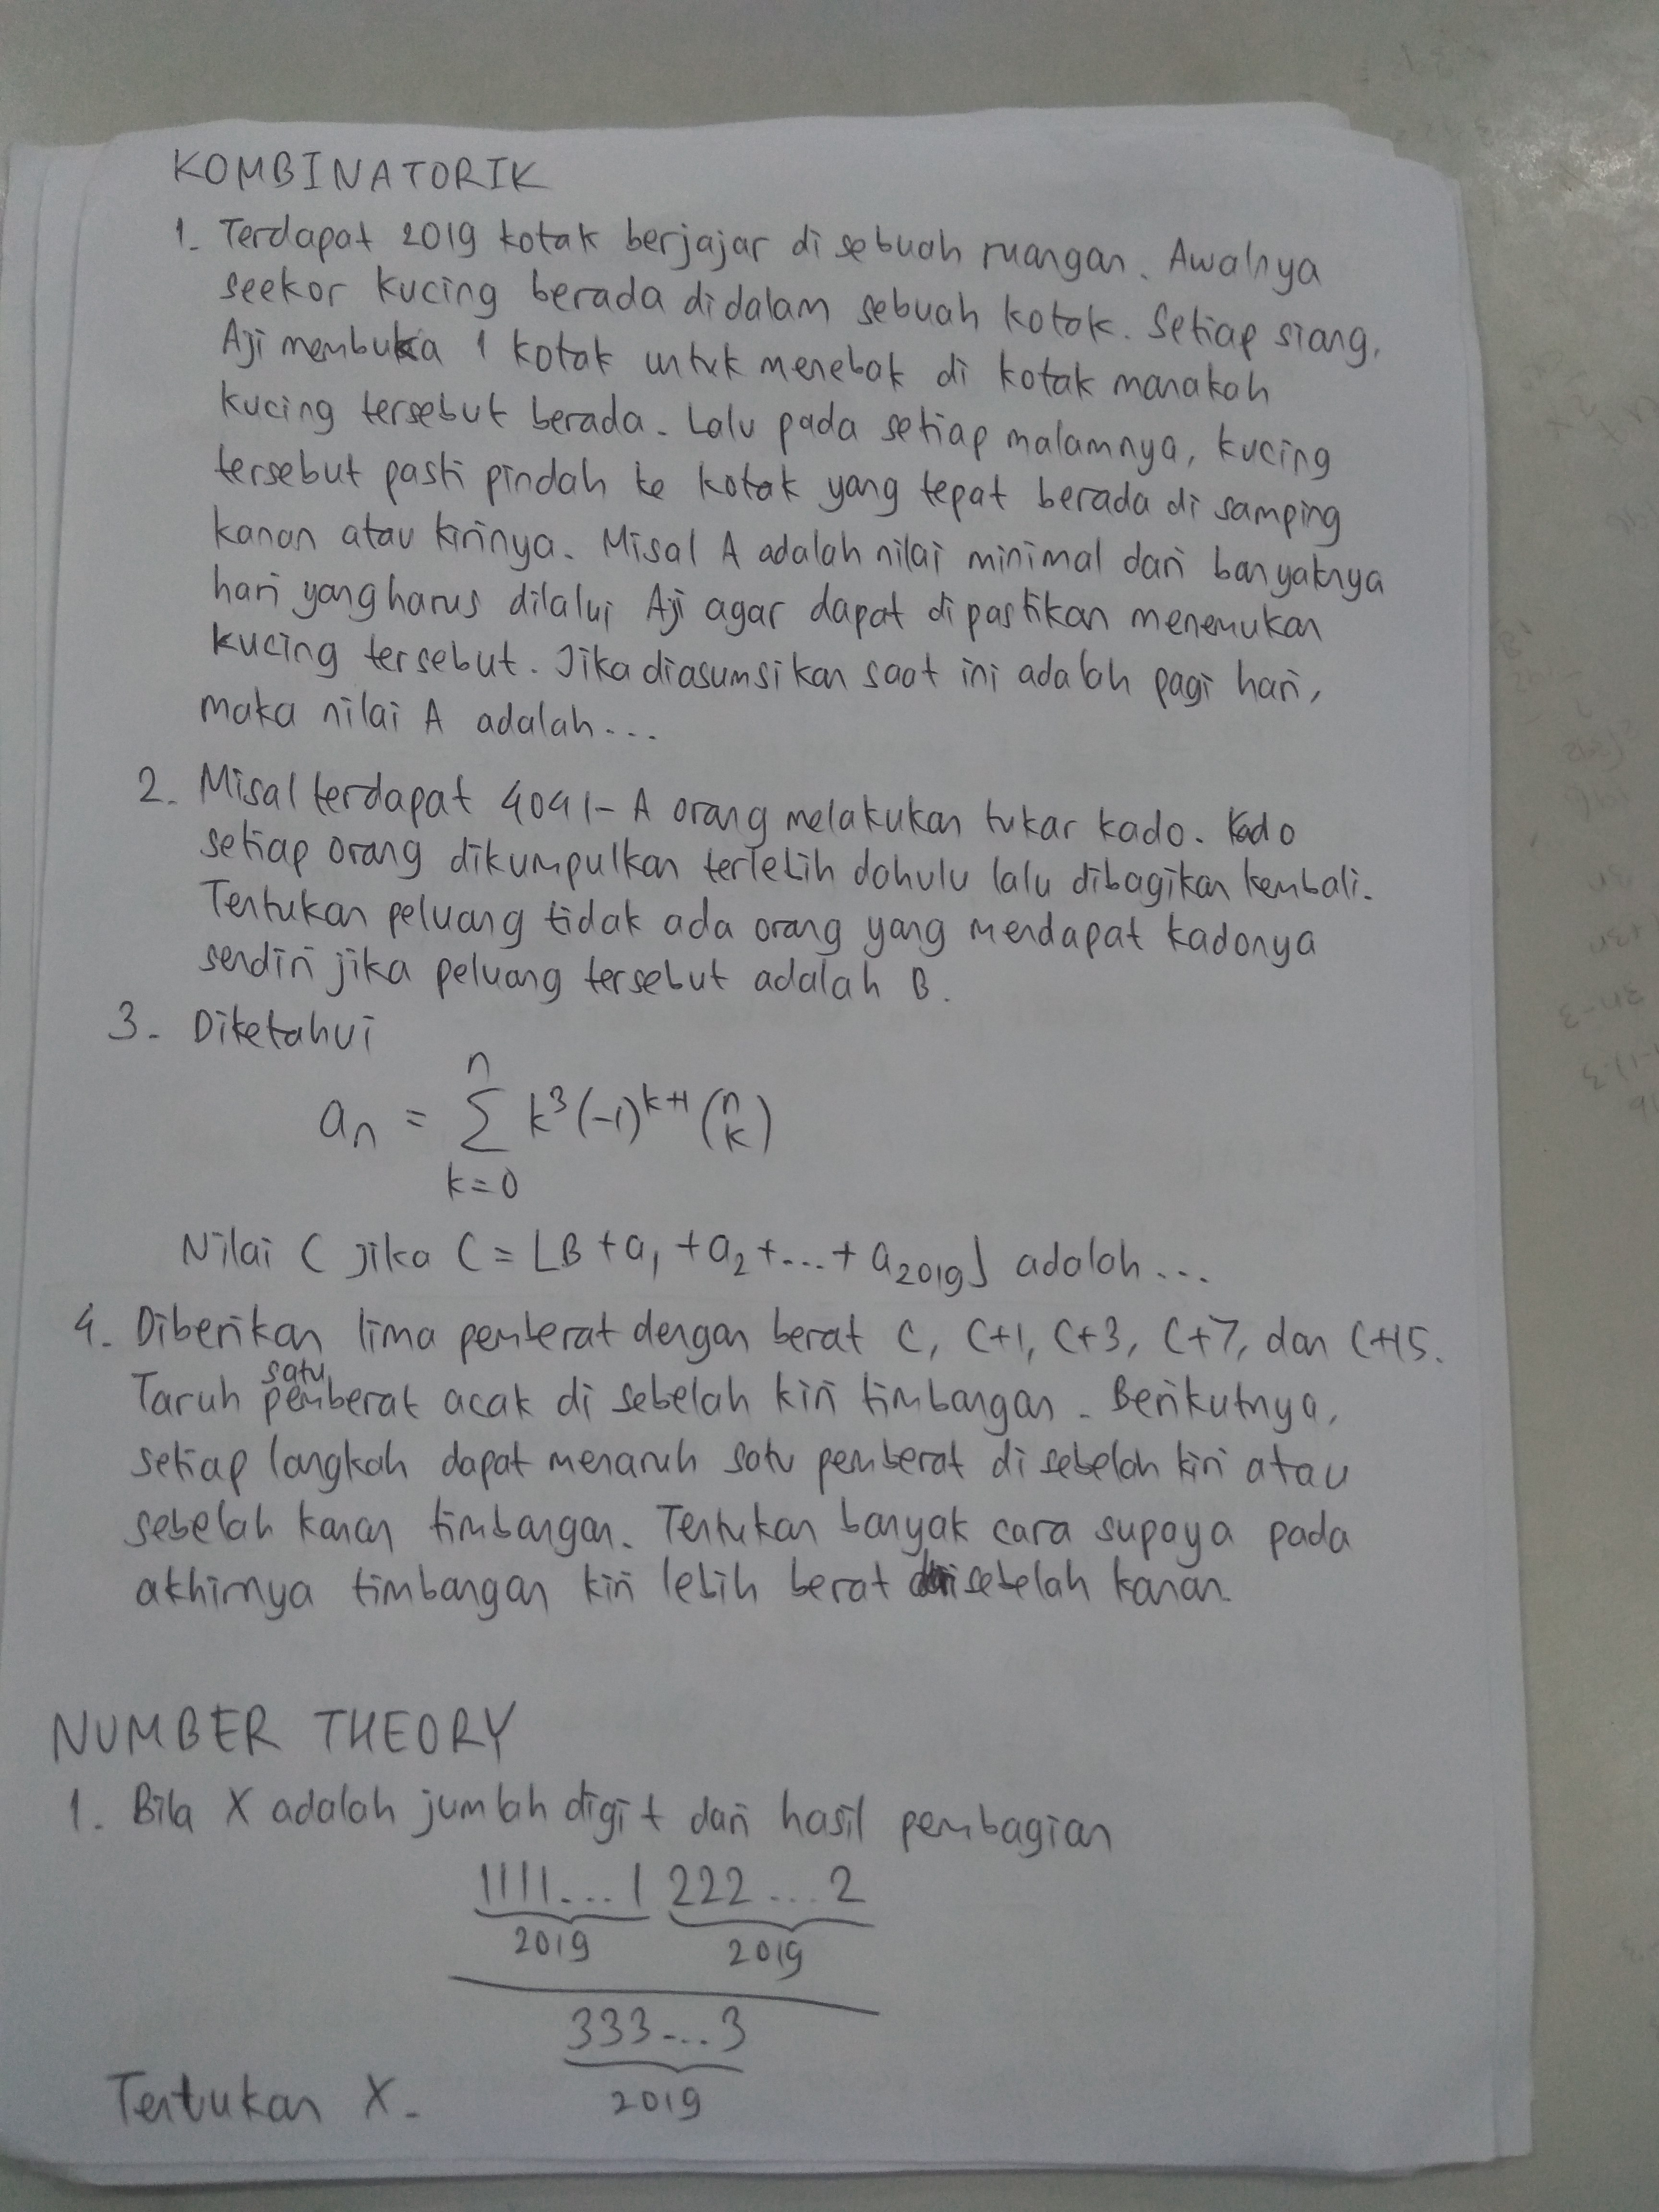 KOMBINATORIK
1. Terdapat 2019 kotak berjajar di sebuah ruangan. Awalnya
seekor kucing berada didalam sebuah kotak. Setiap siang,
Aji membuka 1 kotak untuk menebak di kotak manakah
kucing tersebut berada. Lalu pada setiap malamnya, kucing
tersebut pasti pindah ke kotak yang tepat berada di samping
kanan atau kirinya. Misal A adalah nilai minimal dari banyaknya
hari yang harus dilalui Aji agar dapat dipastikan menemukan
kucing tersebut. Jika diasumsikan saat ini adalah pagi hari,
maka nilai A adalah...
2. Misal terdapat 4041-A orang melakukan tukar kado. Kado
setiap orang dikumpulkan terlebih dahulu lalu dibagikan kembali.
Tentukan peluang tidak ada orang yang mendapat kadonya
sendiri jika peluang tersebut adalah B.
3. Diketahui
n
aₙ = Σ k³(-1)ᵏ⁺¹ (n k)
k=0
Nilai C jika C = ⌊B + a₁ + a₂ + ... + a₂₀₁₉⌋ adalah ...
4. Diberikan lima pemberat dengan berat C, C+1, C+3, C+7, dan C+15.
Taruh satu pemberat acak di sebelah kiri timbangan. Berikutnya,
setiap langkah dapat menaruh satu pemberat di sebelah kiri atau
sebelah kanan timbangan. Tentukan banyak cara supaya pada
akhirnya timbangan kiri lebih berat dari sebelah kanan.
NUMBER THEORY
1. Bila X adalah jumlah digit dari hasil pembagian
1111...1 222...2
2019 2019
333...3
2019
Tentukan X.